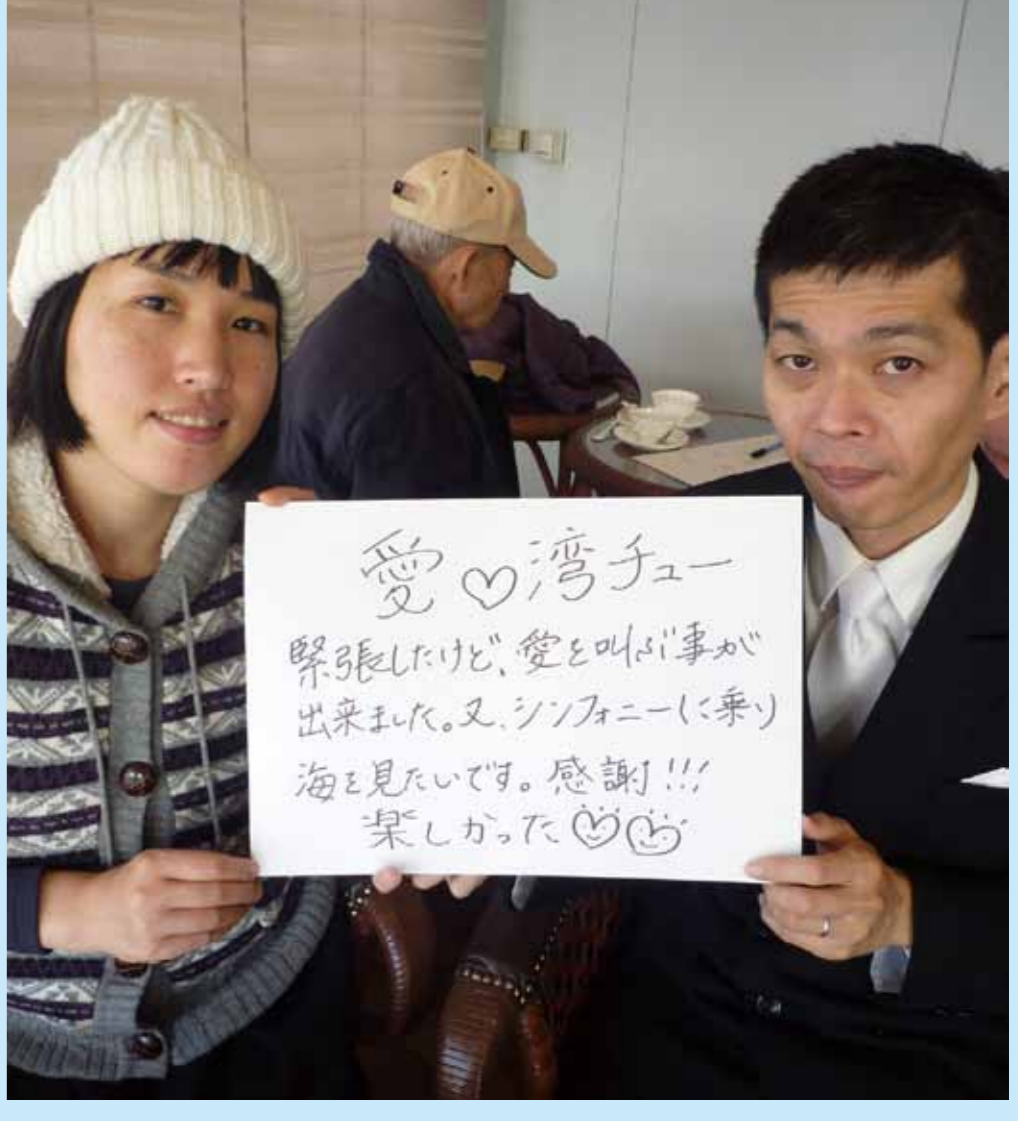 愛♡湾チュー
緊張したけど、愛を叫ぶ事が
出来ました。又、シンフォニーに乗り
海を見たいです。感謝!!!
楽しかった♡♡